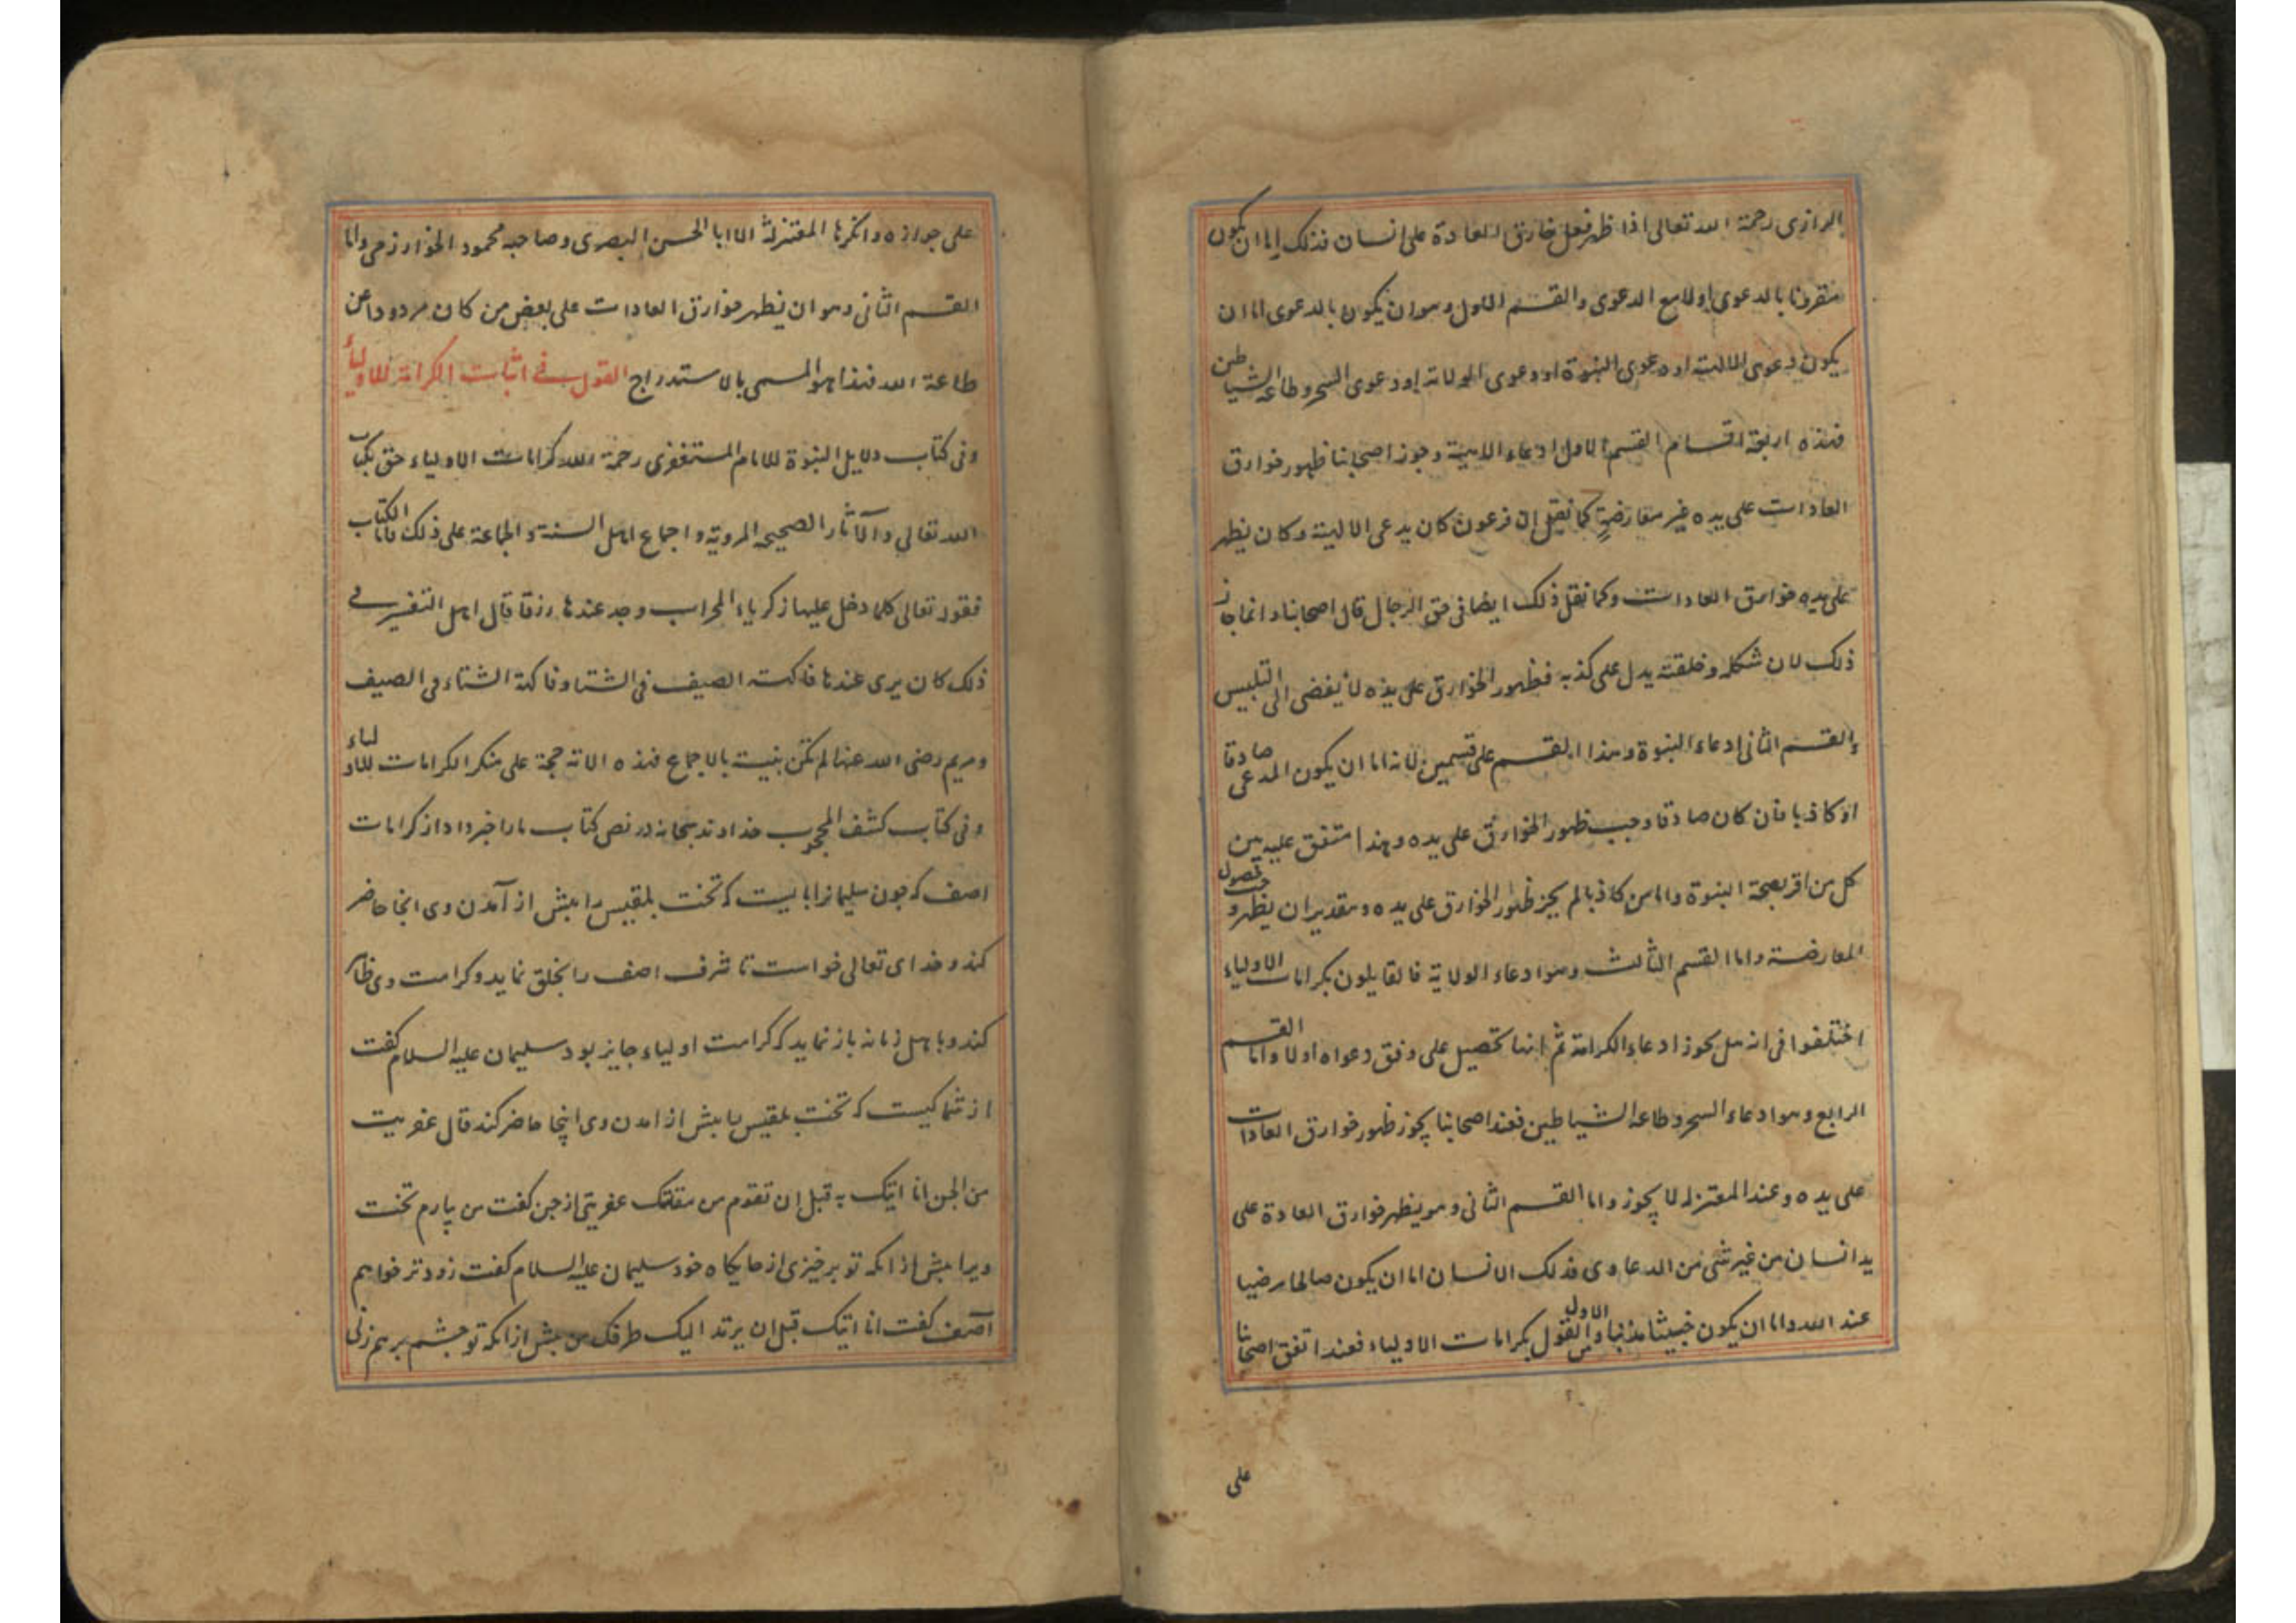 الرازى رحمة الله تعالى اذا ظهر فعل خارق العادة على انسان فذلك اما ان يكون
مقرونا بالدعوى اولا مع الدعوى والقسم الاول وهو ان يكون بالدعوى اما ان
يكون دعوى الالهية او دعوى النبوة او دعوى الولاية او دعوى السحر وطاعة الشياطين
فهذه اربعة اقسام القسم الاول ادعاء الالهية وجوز اصحابنا ظهور خوارق
العادات على يده غير معارضةٍ كما نقل ان فرعون كان يدعى الالهية وكان يظهر
على يده خوارق العادات وكما نقل ذلك ايضا فى حق الرجال قال اصحابنا وانما جاز
ذلك لان شكله وخلقته يدل على كذبه فظهور الخوارق على يده لا يفضى الى التلبيس
والقسم الثانى ادعاء النبوة وهذا القسم على قسمين لانه اما ان يكون المدعى صادقا
او كاذبا فان كان صادقا وجب ظهور الخوارق على يده وهذا متفق عليه بين
كل من اقر بصحة النبوة وان من كاذبا لم يجز ظهور الخوارق على يده وبتقدير ان يظهر وجب حصول
المعارضة واما القسم الثالث وهو ادعاء الولاية فالقايلون بكرامات الاولياء
اختلفوا فى انه هل يجوز ادعاء الكرامة ثم انها تحصيل على وفق دعواه اولا واما القسم
الرابع وهو ادعاء السحر وطاعة الشياطين فعند اصحابنا يجوز ظهور خوارق العادات
على يده وعند المعتزلة لا يجوز واما القسم الثانى وهو يظهر خوارق العادة على
يد انسان من غير شئ من الدعاوى فذلك الانسان اما ان يكون صالحا رضيا
عند الله واما ان يكون خبيثا مذنبا والاول من القول بكرامات الاولياء فعند اتفق اصحابنا
على
على جوازه وانكرها المعتزلة الا ابا الحسن البصرى وصاحبه محمود الخوارزمى واما
القسم الثانى وهو ان يظهر خوارق العادات على بعض من كان مردودا عن
طاعة الله فهذا هو المسمى بالاستدراج القول فى اثبات الكرامة للاولياء
وفى كتاب دلايل النبوة للامام المستغفرى رحمة الله كرامات الاولياء حق بكتاب
الله تعالى والآثار الصحيحة المروية واجماع اهل السنة والجماعة على ذلك فاما الكتاب
فقوله تعالى كلما دخل عليها زكرياء المحراب وجد عندها رزقا قال اهل التفسير فى
ذلك كان يرى عندها فاكهة الصيف فى الشتاء وفاكهة الشتاء فى الصيف
ومريم رضى الله عنها لم تكن بنبية بالاجماع فهذه الاية حجة على منكر الكرامات للاولياء
وفى كتاب كشف المحجوب خداوند سبحانه در نص كتاب مارا خبر داد از كرامات
اصف كه چون سليمانرا بايست كه تخت بلقيس را پيش از آمدن وى انجا حاضر
كند و خداى تعالى خواست تا شرف اصف را بخلق نمايد و كرامت وى ظاهر
كند و باهل زمانه باز نمايد كه كرامت اولياء جايز بود سليمان عليه السلام كفت
از شما كيست كه تخت بلقيس پيش از امدن وى اينجا حاضر كند قال عفريت
من الجن انا اتيك به قبل ان تقوم من مقامك عفريتى از جن كفت من بيارم تخت
ويرا پيش از انكه تو برخيزى از جايكاه خود سليمان عليه السلام كفت زودتر خواهم
آصف كفت انا اتيك قبل ان يرتد اليك طرفك من پيش از انكه تو چشم برهم زنى